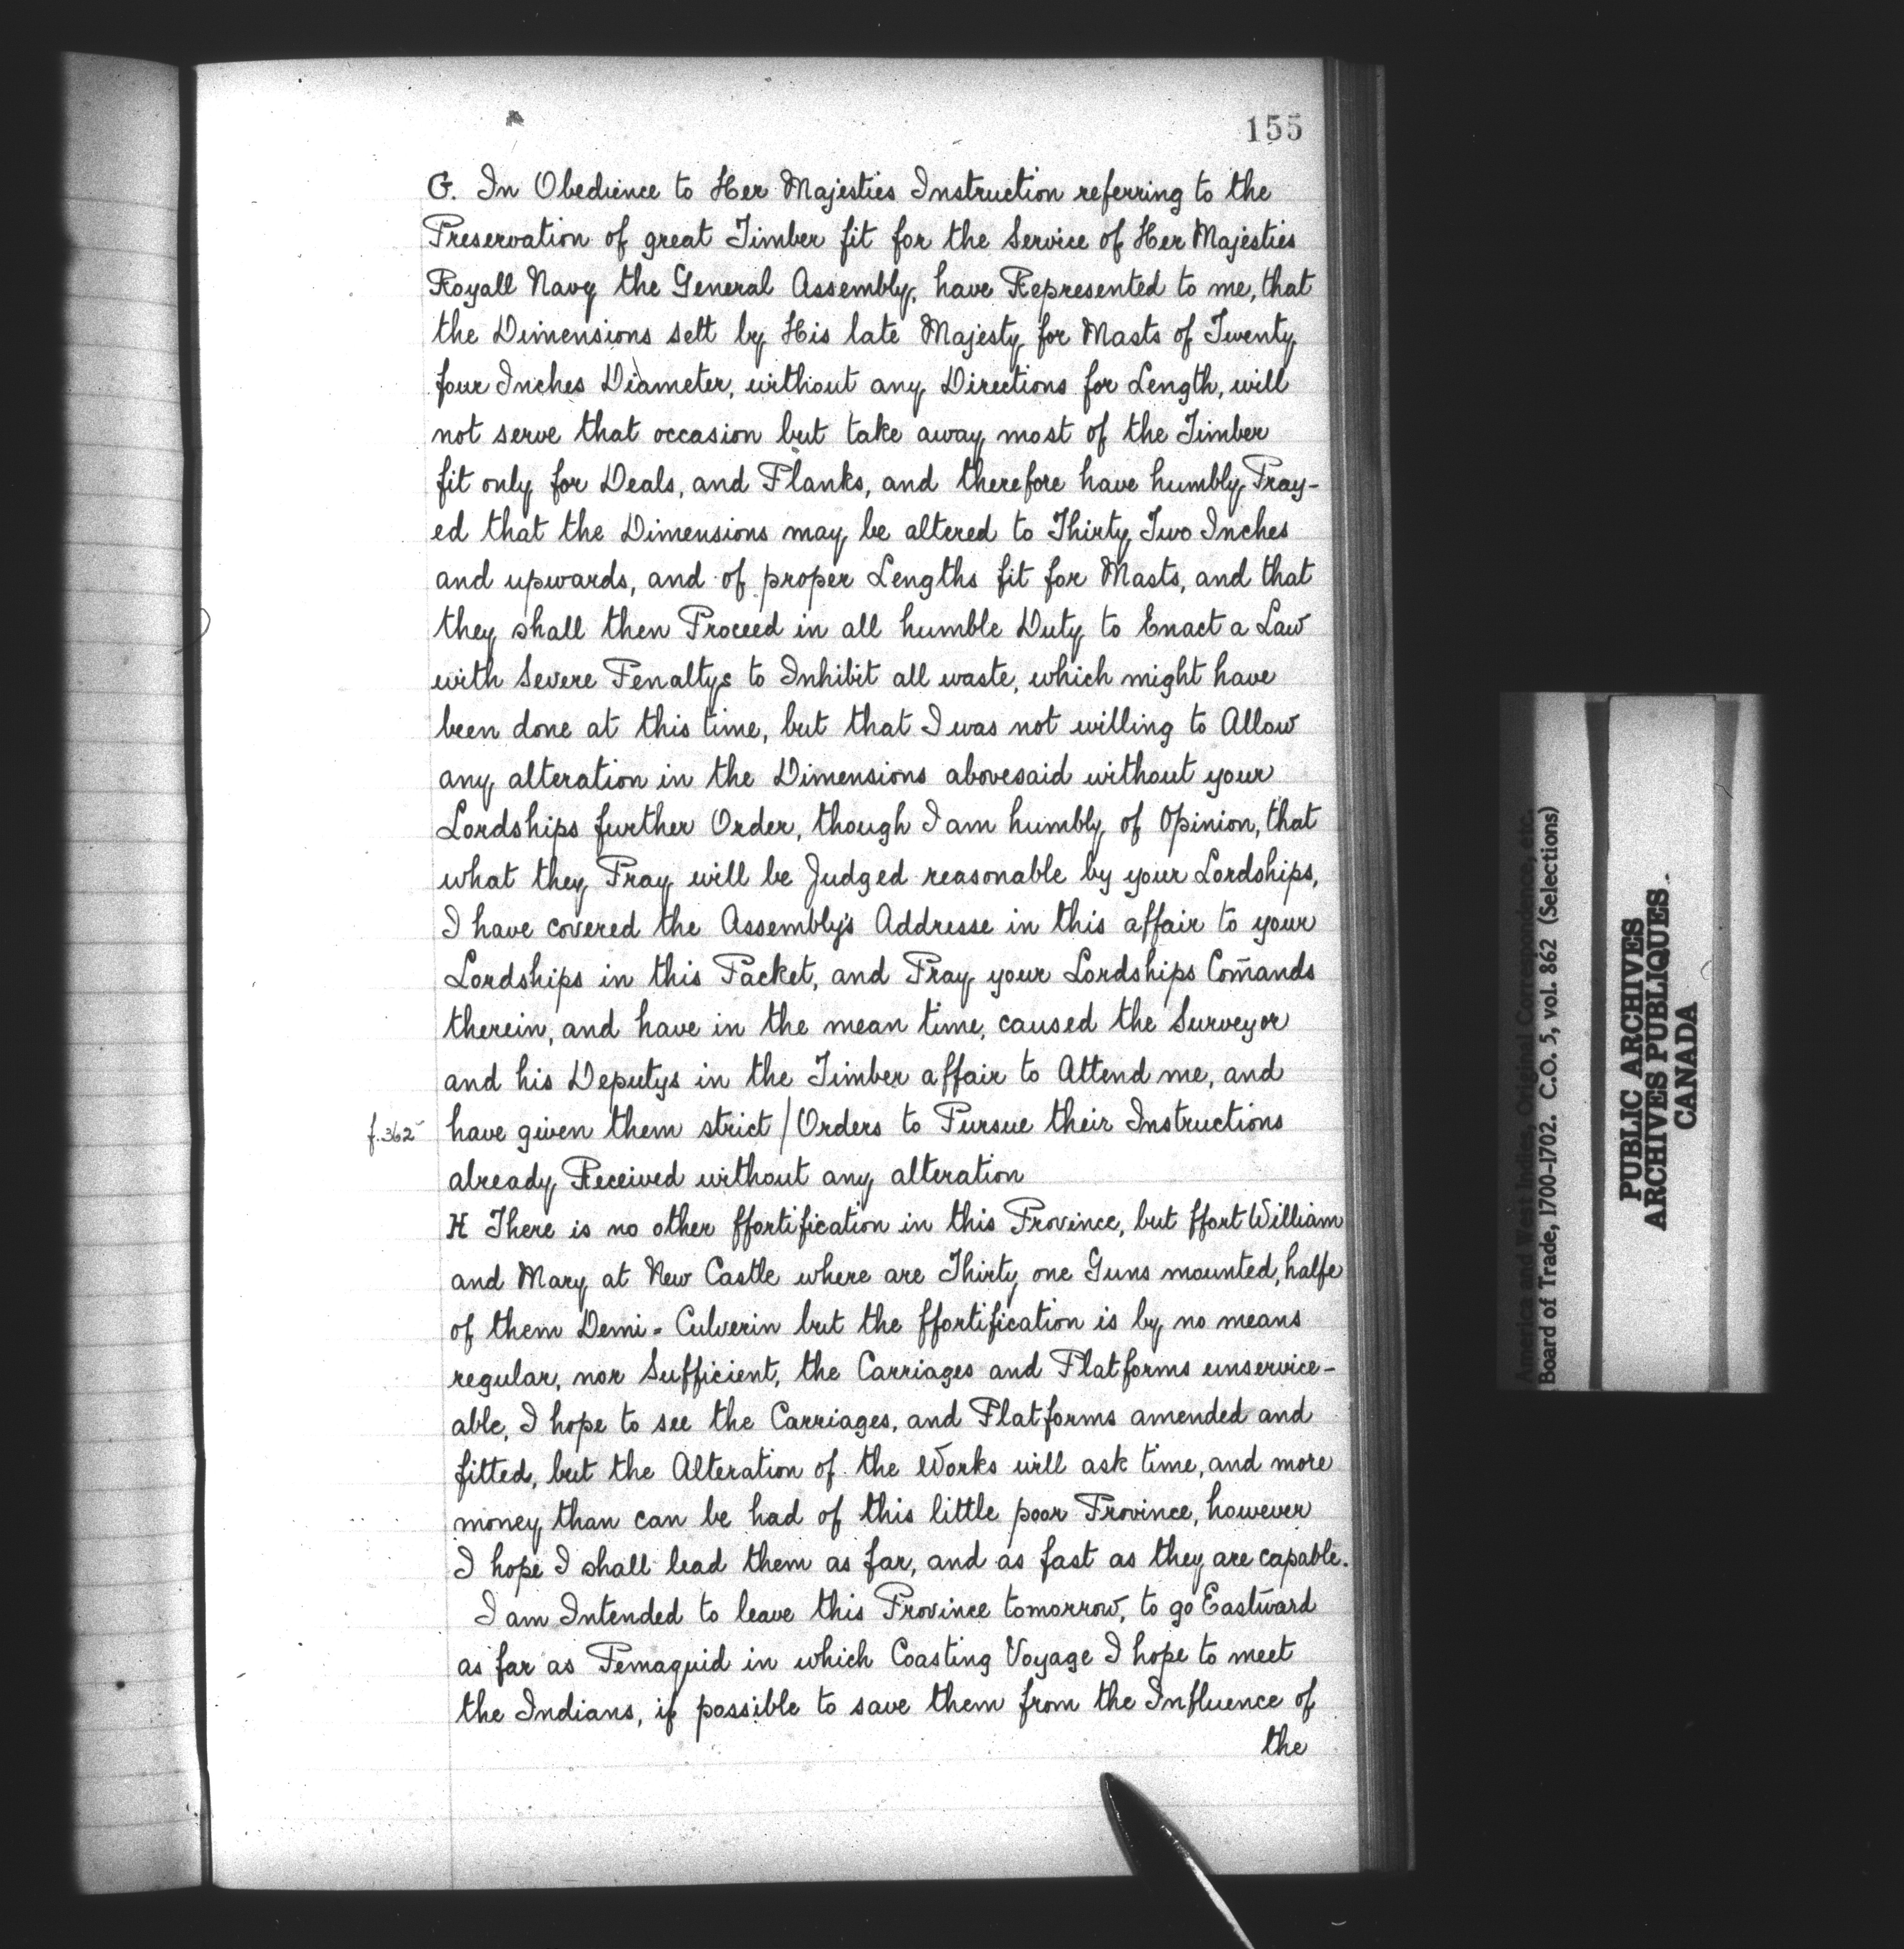 155
G. In Obedience to Her Majesties Instruction referring to the
Preservation of great Timber fit for the Service of Her Majesties
Royall Navy the General Assembly, have Represented to me, that
the Dimensions sett by His late Majesty for Masts of Twenty
four Inches Diameter, without any Directions for Length, will
not serve that occasion but take away most of the Timber
fit only for Deals, and Planks, and therefore have humbly Pray-
ed that the Dimensions may be altered to Thirty Two Inches
and upwards, and of proper Lengths fit for Masts, and that
they shall then Proceed in all humble Duty to Enact a Law
with Severe Penaltys to Inhibit all waste, which might have
been done at this time, but that I was not willing to Allow
any alteration in the Dimensions abovesaid without your
Lordships further Order, though I am humbly of Opinion, that
what they Pray will be Judged reasonable by your Lordships,
I have covered the Assembly's Addresse in this affair to your
Lordships in this Packet, and Pray your Lordships Com̄ands
therein, and have in the mean time, caused the Surveyor
and his Deputys in the Timber affair to Attend me, and
f.362 have given them strict / Orders to Pursue their Instructions
already Received without any alteration
H There is no other ffortification in this Province, but ffort William
and Mary at New Castle where are Thirty one Guns mounted, halfe
of them Demi-Culverin but the ffortification is by no means
regular, nor Sufficient, the Carriages and Platforms unservice-
able, I hope to see the Carriages, and Platforms amended and
fitted, but the Alteration of the Works will ask time, and more
money than can be had of this little poor Province, however
I hope I shall lead them as far, and as fast as they are capable.
I am Intended to leave this Province tomorrow, to go Eastward
as far as Pemaquid in which Coasting Voyage I hope to meet
the Indians, if possible to save them from the Influence of
the
America and West Indies, Original Correspondence, etc.
Board of Trade, 1700-1702. C.O. 5, vol. 862 (Selections)
PUBLIC ARCHIVES
ARCHIVES PUBLIQUES
CANADA